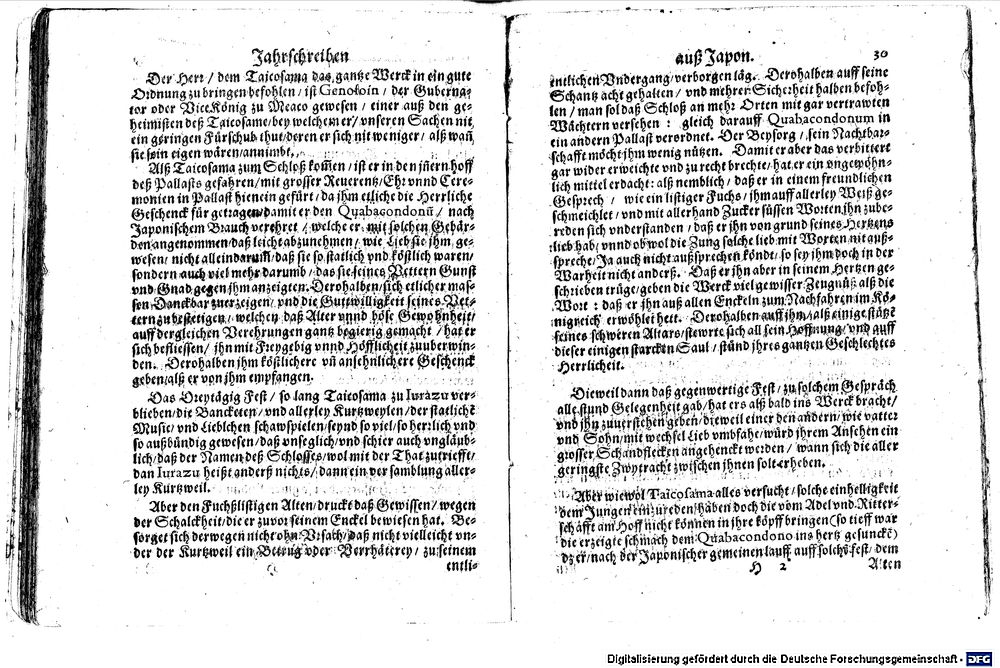 Jahrschreiben
Der Herr / dem Taicosama das gantze Werck in ein gute
Ordnung zu bringen befohlen / ist Genofoin / der Guberna-
tor oder ViceKönig zu Meaco gewesen / einer auß den ge-
heimisten deß Taicosame / bey welchem er / vnseren Sachen nit
ein geringen Fürschub thut / deren er sich nit weniger / alß wañ
sie sein eigen wären / annimbt.
Alß Taicosama zum Schloß kom̃en / ist er in den jñern hoff
deß Pallasts gefahren / mit grosser Reuerentz / Ehr vnnd Cere-
monien in Pallast hienein gefürt / da jhm etliche die Herrliche
Geschenck für getragen / damit er den Quabacondonũ / nach
Japonischem Brauch verehret / welche er mit solchen Gebär-
den angenommen / daß leicht abzunehmen / wie Lieb sie jhm ge-
wesen / nicht allein darum / daß sie so statlich vnd köstlich waren /
sondern auch viel mehr darumb / das sie seines Vettern Gunst
vnd Gnad gegen jhm anzeigten. Derohalben / sich etlicher mas-
sen Danckbar zuerzeigen / vnd die Guttwilligkeit seines Vet-
tern zu bestetigen / welchen daß Alter vnnd böse Gewohnheit /
auff dergleichen Verehrungen gantz begierig gemacht / hat er
sich beflissen / jhn mit Freygebig vnnd Höfflicheit zuuberwin-
den. Derohalben jhm köstlichere vñ ansehnlichere Geschenck
geben / alß er von jhm empfangen.
Das Dreytägig Fest / so lang Taicosama zu Iurazu ver-
blieben / die Bancketen / vnd allerley Kurtzweylen / der statlichẽ
Music / vnd Lieblchen schawspielen / seynd so viel / so herrlich vnd
so außbündig gewesen / daß vnseglich / vnd schier auch vngläub-
lich / daß der Namen deß Schlosses / wol mit der That zutrifft /
dan Iurazu heißt anderß nichts / dann ein versamblung aller-
ley Kurtzweil.
Aber den Fuchßlistigen Alten / druckt daß Gewissen / wegen
der Schalckheit / die er zuvor seinem Enckel bewiesen hat. Be-
sorget sich derwegen nicht ohn Vrsach / daß nicht vielleicht vn-
der der Kurtzweil ein Betrug oder Verrhäterey / zu seinem
entli-
auß Japon. 30
entlichen Vndergang / verborgen läg. Derohalben auff seine
Schantz acht gehalten / vnd mehrer Sicherheit halben befoh-
len / man sol daß Schloß an mehr Orten mit gar vertrawten
Wächtern versehen : gleich darauff Quabacondonum in
ein andern Pallast verordnet. Der Beysorg / sein Nachtbar-
schafft möcht jhm wenig nützen. Damit er aber das verbittert
gar wider erweichte vnd zu recht brechte / hat er ein vngewöhn-
lich mittel erdacht: alß nemblich / daß er in einem freundlichen
Gesprech / wie ein listiger Fuchs / jhm auff allerley Weiß ge-
schmeichlet / vnd mit allerhand Zucker süssen Worten jhn zube-
reden sich vnderstanden / daß er jhn von grund seines Hertzens
lieb hab / vnnd ob wol die Zung solche lieb mit Worten nit auß-
spreche / Ja auch nicht außsprechen köndt / so sey jhm doch in der
Warheit nicht anderß. Daß er jhn aber in seinem Hertzen ge-
schrieben trüge / geben die Werck viel gewisser Zeugnuß alß die
Wort : daß er jhn auß allen Enckeln zum Nachfahren im Kö-
nigreich erwöhlet hett. Derohalben auff jhm / alß einige stütz
seines schweren Alters / stewrte sich all sein Hoffnung / vnd auff
dieser einigen starcken Saul / stünd jhres gantzen Geschlechtes
Herrlicheit.
Dieweil dann daß gegenwertige Fest / zu solchem Gespräch
alle stund Gelegenheit gab / hat ers alß bald ins Werck bracht /
vnd jhn zuuerstehen geben / dieweil einer den andern / wie vatter
vnd Sohn / mit wechsel Lieb vmbfahe / würd jhrem Ansehen ein
grosser Schandflecken angehenckt werden / wann sich die aller
geringste Zwytracht zwischen jhnen solt erheben.
Aber wiewol Taicosama alles versucht / solche einhelligkeit
dem Jungen einzureden / haben doch die vom Adel vnd Ritter-
schafft am Hoff nicht können in jhre köpff bringen (so tieff war
die erzeigte schmach dem Quabacondono ins hertz gesunckẽ)
dz er / nach der Japonischer gemeinen lauff auff solchẽ fest / dem
H 2 Alten
Digitalisierung gefördert durch die Deutsche Forschungsgemeinschaft - DFG